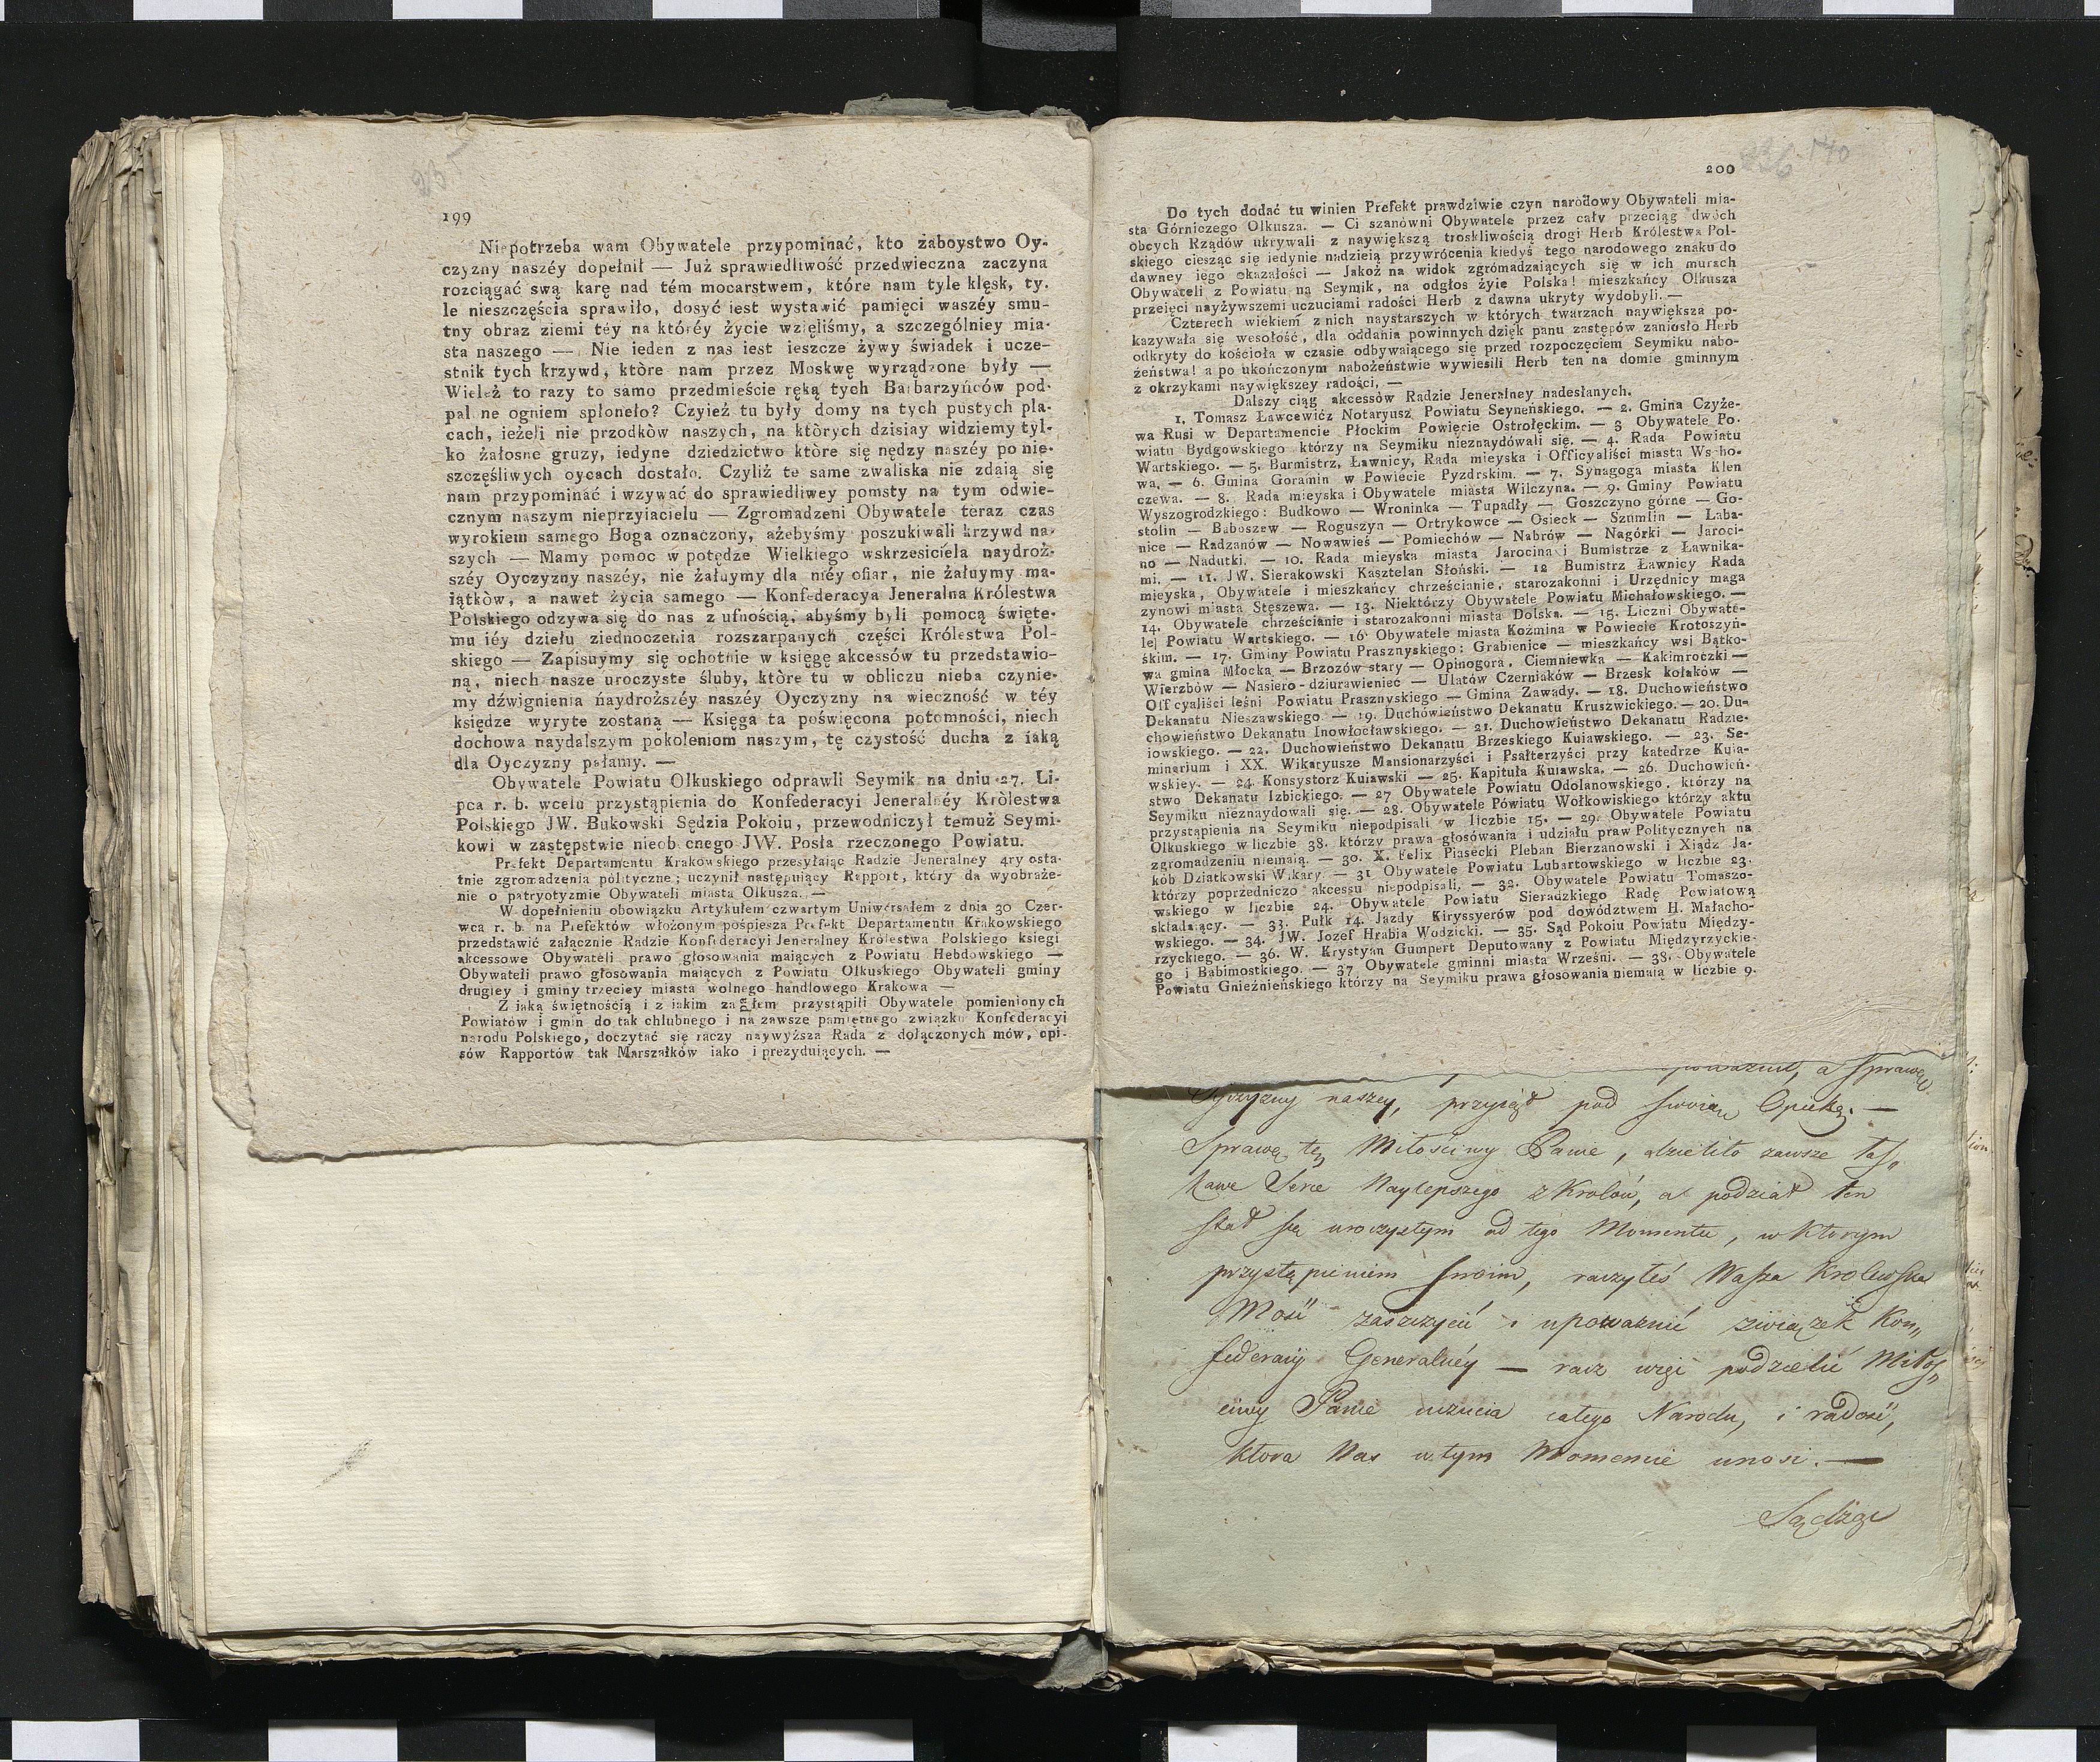 199
Niepotrzeba wam Obywatele przypominać, kto zaboystwo Oy-
czyzny naszéy dopełnił — Już sprawiedliwość przedwieczna zaczyna
rozciągać swą karę nad tém mocarstwem, które nam tyle klęsk, ty.
le nieszczęścia sprawiło, dosyć iest wystawić pamięci waszéy smu-
tny obraz ziemi téy na któréy życie wzięliśmy, a szczególniey mia-
sta naszego — Nie ieden z nas iest ieszcze żywy świadek i ucze-
stnik tych krzywd, które nam przez Moskwę wyrządzone były —
Wieleż to razy to samo przedmieście ręką tych Barbarzyńców pod-
palone ogniem spłoneło? Czyież tu były domy na tych pustych pla-
cach, ieżeli nie przodków naszych, na których dzisiay widziemy tyl-
ko żałosne gruzy, iedyne dziedzictwo które się nędzy naszéy po nie-
szczęśliwych oycach dostało. Czyliż te same zwaliska nie zdaią się
nam przypominać i wzywać do sprawiedliwey pomsty na tym odwie-
cznym naszym nieprzyiacielu — Zgromadzeni Obywatele teraz czas
wyrokiem samego Boga oznaczony, ażebyśmy poszukiwali krzywd na-
szych — Mamy pomoc w potędze Wielkiego wskrzesiciela naydroż-
széy Oyczyzny naszéy, nie żałuymy dla niéy ofiar, nie żałuymy ma-
iątków, a nawet życia samego — Konfederacya Jeneralna Królestwa
Polskiego odzywa się do nas z ufnością, abyśmy byli pomocą święte-
mu iéy dziełu ziednoczenia rozszarpanych części Królestwa Pol-
skiego — Zapisuymy się ochotnie w księgę akcessów tu przedstawio-
ną, niech nasze uroczyste śluby, które tu w obliczu nieba czynie-
my dźwignienia naydroższéy naszéy Oyczyzny na wieczność w téy
księdze wyryte zostaną — Księga ta poświęcona potomności, niech
dochowa naydalszym pokoleniom naszym, tę czystość ducha z iaką
dla Oyczyzny pałamy. —
Obywatele Powiatu Olkuskiego odprawli Seymik na dniu 27. Li-
pca r. b. wcelu przystąpienia do Konfederacyi Jeneralnéy Królestwa
Polskiego JW. Bukowski Sędzia Pokoiu, przewodniczył temuż Seymi-
kowi w zastępstwie nieobecnego JW. Posła rzeczonego Powiatu.
Prefekt Departamentu Krakowskiego przesyłaiąc Radzie Jeneralney 4ry osta-
tnie zgromadzenia polityczne; uczynił następuiący Rapport, który da wyobraże-
nie o patryotyzmie Obywateli miasta Olkusza. —
W dopełnieniu obowiązku Artykułem czwartym Uniwersałem z dnia 30 Czer-
wca r. b. na Prefektów włożonym pośpiesza Prefekt Departamentu Krakowskiego
przedstawić załącznie Radzie Konfederacyi Jeneralney Królestwa Polskiego księgi
akcessowe Obywateli prawo głosowania maiących z Powiatu Hebdowskiego —
Obywateli prawo głosowania maiących z Powiatu Olkuskiego Obywateli gminy
drugiey i gminy trzeciey miasta wolnego handlowego Krakowa —
Z iaką świętnością i z iakim zapałem przystąpili Obywatele pomienionych
Powiatów i gmin do tak chlubnego i na zawsze pamiętnego związku Konfederacyi
narodu Polskiego, doczytać się raczy naywyższa Rada z dołączonych mów, opi-
sów Rapportów tak Marszałków iako i prezyduiących. —
200
140
Do tych dodać tu winien Prefekt prawdziwie czyn narodowy Obywateli mia-
sta Górniczego Olkusza. — Ci szanówni Obywatele przez cały przeciąg dwóch
obcych Rządów ukrywali z naywiększą troskliwością drogi Herb Królestwa Pol-
skiego ciesząc się iedynie nadzieią przywrócenia kiedyś tego narodowego znaku do
dawney iego okazałości — Jakoż na widok zgrómadzaiących się w ich murach
Obywateli z Powiatu na Seymik, na odgłos żyie Polska! mieszkańcy Olkusza
przeięci nayżywszemi uczuciami radości Herb z dawna ukryty wydobyli. —
Czterech wiekiem z nich naystarszych w których twarzach naywiększa po-
kazywała się wesołość, dla oddania powinnych dzięk panu zastępów zaniosło Herb
odkryty do kościoła w czasie odbywaiącego się przed rozpoczęciem Seymiku nabo-
żeństwa! a po ukończonym nabożeństwie wywiesili Herb ten na domie gminnym
z okrzykami naywiększey radości, —
Dalszy ciąg akcessów Radzie Jeneralney nadesłanych.
1. Tomasz Ławcewicz Notaryusz Powiatu Seyneńskiego. — 2. Gmina Czyże-
wa Rusi w Departamencie Płockim Powięcie Ostrołęckim. — 3 Obywatele Po.
wiatu Bydgowskiego którzy na Seymiku nieznaydówali się. — 4. Rada Powiatu
Wartskiego. — 5. Burmistrz, Ławnicy, Rada mieyska i Officyaliści miasta Wscho-
wa. — 6. Gmina Goramin w Powiecie Pyzdrskim. — 7. Synagoga miasta Klen
czewa. — 8. Rada mieyska i Obywatele miasta Wilczyna. — 9. Gminy Powiatu
Wyszogrodzkiego: Budkowo — Wroninka — Tupadły — Goszczyno górne — Go-
stolin — Baboszew — Roguszyn — Ortrykowce — Osieck — Szumlin — Laba-
nice — Radzanów — Nowawieś — Pomiechów — Nabrów — Nagórki — Jaroci-
no — Nadutki. — 10. Rada mieyska miasta Jarocina i Bumistrze z Ławnika-
mi. — 11. JW. Sierakowski Kasztelan Słoński. — 12 Bumistrz Ławnicy Rada
mieyska, Obywatele i mieszkańcy chrześcianie, starozakonni i Urzędnicy maga
zynowi miasta Stęszewa. — 13. Niektórzy Obywatele Powiatu Michałowskiego. —
14. Obywatele chrześcianie i starozakonni miasta Dolska. — 15. Liczni Obywate-
lej Powiatu Wartskiego. — 16. Obywatele miasta Koźmina w Powiecie Krotoszyń-
skim. — 17. Gminy Powiatu Prasznyskiego: Grabienice — mieszkańcy wsi Bątko-
wa gmina Młocka — Brzozów stary — Opinogóra, Ciemniewka — Kakimroczki —
Wierzbów — Nasiero-dziurawieniec — Ulatów Czerniaków — Brzesk kołaków —
Officyaliści leśni Powiatu Prasznyskiego — Gmina Zawady. — 18. Duchowieństwo
Dekanatu Nieszawskiego — 19. Duchówieństwo Dekanatu Kruszwickiego. — 20. Du-
chowieństwo Dekanatu Inowłocławskiego. — 21. Duchowieństwo Dekanatu Radzie-
iowskiego. — 22. Duchowieństwo Dekanatu Brzeskiego Kuiawskiego. — 23. Se-
minarium i XX. Wikaryusze Mansionarzyści i Psałterzyści przy katedrze Kuia-
wskiey. — 24. Konsystorz Kuiawski — 25. Kapituła Kuiawska. — 26. Duchowień-
stwo Dekanatu Izbickiego. — 27 Obywatele Powiatu Odolanowskiego. którzy na
Seymiku nieznaydowali się. — 28. Obywatele Pówiatu Wołkowiskiego którzy aktu
przystąpienia na Seymiku niepodpisali w liczbie 15. — 29. Obywatele Powiatu
Olkuskiego w liczbie 38. którzy prawa głosówania i udziału praw Politycznych na
zgromadzeniu niemaią. — 30. X. Felix Piasecki Pleban Bierzanowski i Xiądz Ja-
kób Dziatkowski Wikary. — 31 Obywatele Powiatu Lubartowskiego w liczbie 23.
którzy poprzedniczo akcessu niepodpisali, — 32. Obywatele Powiatu Tomaszo-
wskiego w liczbie 24. Obywatele Powiatu Sieradzkiego Radę Powiatową
składaiący. — 33. Pułk 14. Jazdy Kiryssyerów pod dowództwem H. Małacho-
wskiego. — 34. JW. Jozef Hrabia Wodzicki. — 35. Sąd Pokoiu Powiatu Między-
rzyckiego. — 36. W. Krystyan Gumpert Deputowany z Powiatu Międzyrzyckie-
go i Babimostkiego. — 37 Obywatele gminni miasta Wrześni. — 38. Obywatele
Powiatu Gnieźnieńskiego którzy na Seymiku prawa głosowania niemaią w liczbie 9.
a sprawę
Oyczyzny naszey, przyiął pod swoią Opiekę. —
Sprawę tę Miłościwy Panie, dzieliło zawsze łas„
kawe Serce Naylepszego z Krolów, a podział ten
stał się uroczystym od tego Momentu, w ktorym
przystąpieniem swoim, raczyłeś Wasza Krolewska
Mość zaszczycić i upoważnić związek Kon„
federacyi Generalnéy — racz więc podzielić Miłoś„
ciwy Panie uczucia całego Narodu, i radość,
ktora Nas w tym Momencie unosi. —
Sądząc